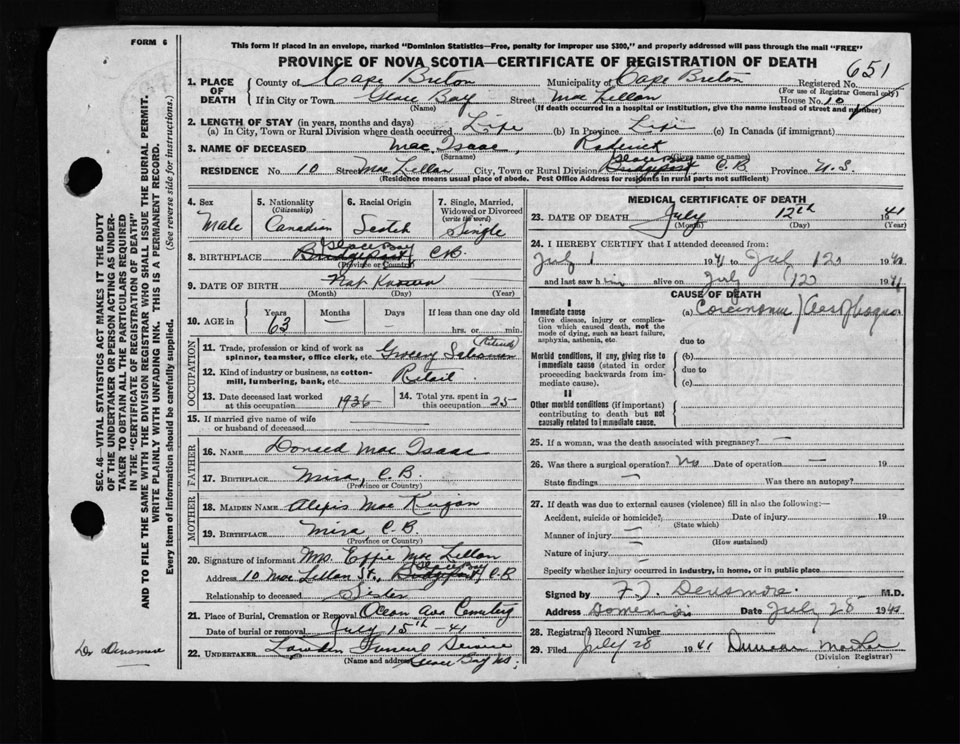 FORM 6
This form if placed in an envelope, marked "Dominion Statistics—Free, penalty for improper use $300," and properly addressed will pass through the mail "FREE"
PROVINCE OF NOVA SCOTIA—CERTIFICATE OF REGISTRATION OF DEATH
651
1. PLACE OF DEATH County of Cape Breton Municipality of Cape Breton Registered No.
(For use of Registrar General only)
If in City or Town Glace Bay Street MacLellan House No. 10
(Name) (If death occurred in a hospital or institution, give the name instead of street and number)
2. LENGTH OF STAY (in years, months and days)
(a) In City, Town or Rural Division where death occurred Life (b) In Province Life (c) In Canada (if immigrant)
3. NAME OF DECEASED Mac Isaac, Roderick
(Surname) (Given name or names)
RESIDENCE No. 10 Street MacLellan City, Town or Rural Division Bridgeport Glace Bay C.B. Province N.S.
(Residence means usual place of abode. Post Office Address for residents in rural parts not sufficient)
4. Sex Male
5. Nationality (Citizenship) Canadian
6. Racial Origin Scotch
7. Single, Married, Widowed or Divorced (write the word) Single
8. BIRTHPLACE Bridgeport Glace Bay C.B.
(Province or Country)
9. DATE OF BIRTH Not Known
(Month) (Day) (Year)
10. AGE in Years 63 Months — Days — If less than one day
hrs. or min.
OCCUPATION
11. Trade, profession or kind of work as spinner, teamster, office clerk, etc. Grocery Salesman (Retired)
12. Kind of industry or business, as cotton-mill, lumbering, bank, etc. Retail
13. Date deceased last worked at this occupation 1936
14. Total yrs. spent in this occupation 25
15. If married give name of wife or husband of deceased
FATHER
16. NAME Donald Mac Isaac
17. BIRTHPLACE Mira, C.B.
(Province or Country)
MOTHER
18. MAIDEN NAME
19. BIRTHPLACE Mira, C.B.
(Province or Country)
20. Signature of informant Mrs. Effie MacLellan
Address 10 MacLellan St., Bridgeport Glace Bay C.B.
Relationship to deceased Sister
21. Place of Burial, Cremation or Removal Ocean Ava Cemetery
Date of burial or removal July 15th - 41
22. UNDERTAKER Funeral Service
(Name and address) Glace Bay NS;
MEDICAL CERTIFICATE OF DEATH
23. DATE OF DEATH July 12th 1941
(Month) (Day) (Year)
24. I HEREBY CERTIFY that I attended deceased from:
July 1 1941 to July 12 19
and last saw him alive on July 12 1941
CAUSE OF DEATH
I
Immediate cause
Give disease, injury or complication which caused death, not the mode of dying, such as heart failure, asphyxia, asthenia, etc.
(a) Carcinoma
due to
Morbid conditions, if any, giving rise to immediate cause (stated in order proceeding backwards from immediate cause).
(b)
due to
(c)
II
Other morbid conditions (if important) contributing to death but not causally related to immediate cause.
25. If a woman, was the death associated with pregnancy? —
26. Was there a surgical operation? No Date of operation — 19
State findings — Was there an autopsy?
27. If death was due to external causes (violence) fill in also the following:—
Accident, suicide or homicide? Date of injury 19
(State which)
Manner of injury —
(How sustained)
Nature of injury —
Specify whether injury occurred in industry, in home, or in public place
Signed by Densmore M.D.
Address Date July 28 19
28. Registrar's Record Number
29. Filed July 28 1941 Duncan
(Division Registrar)
SEC. 46—VITAL STATISTICS ACT MAKES IT THE DUTY OF THE UNDERTAKER OR PERSON ACTING AS UNDERTAKER TO OBTAIN ALL THE PARTICULARS REQUIRED IN THE "CERTIFICATE OF REGISTRATION OF DEATH"
AND TO FILE THE SAME WITH THE DIVISION REGISTRAR WHO SHALL ISSUE THE BURIAL PERMIT.
WRITE PLAINLY WITH UNFADING INK. THIS IS A PERMANENT RECORD.
Every item of information should be carefully supplied. (See reverse side for instructions.)
Dr Densmore